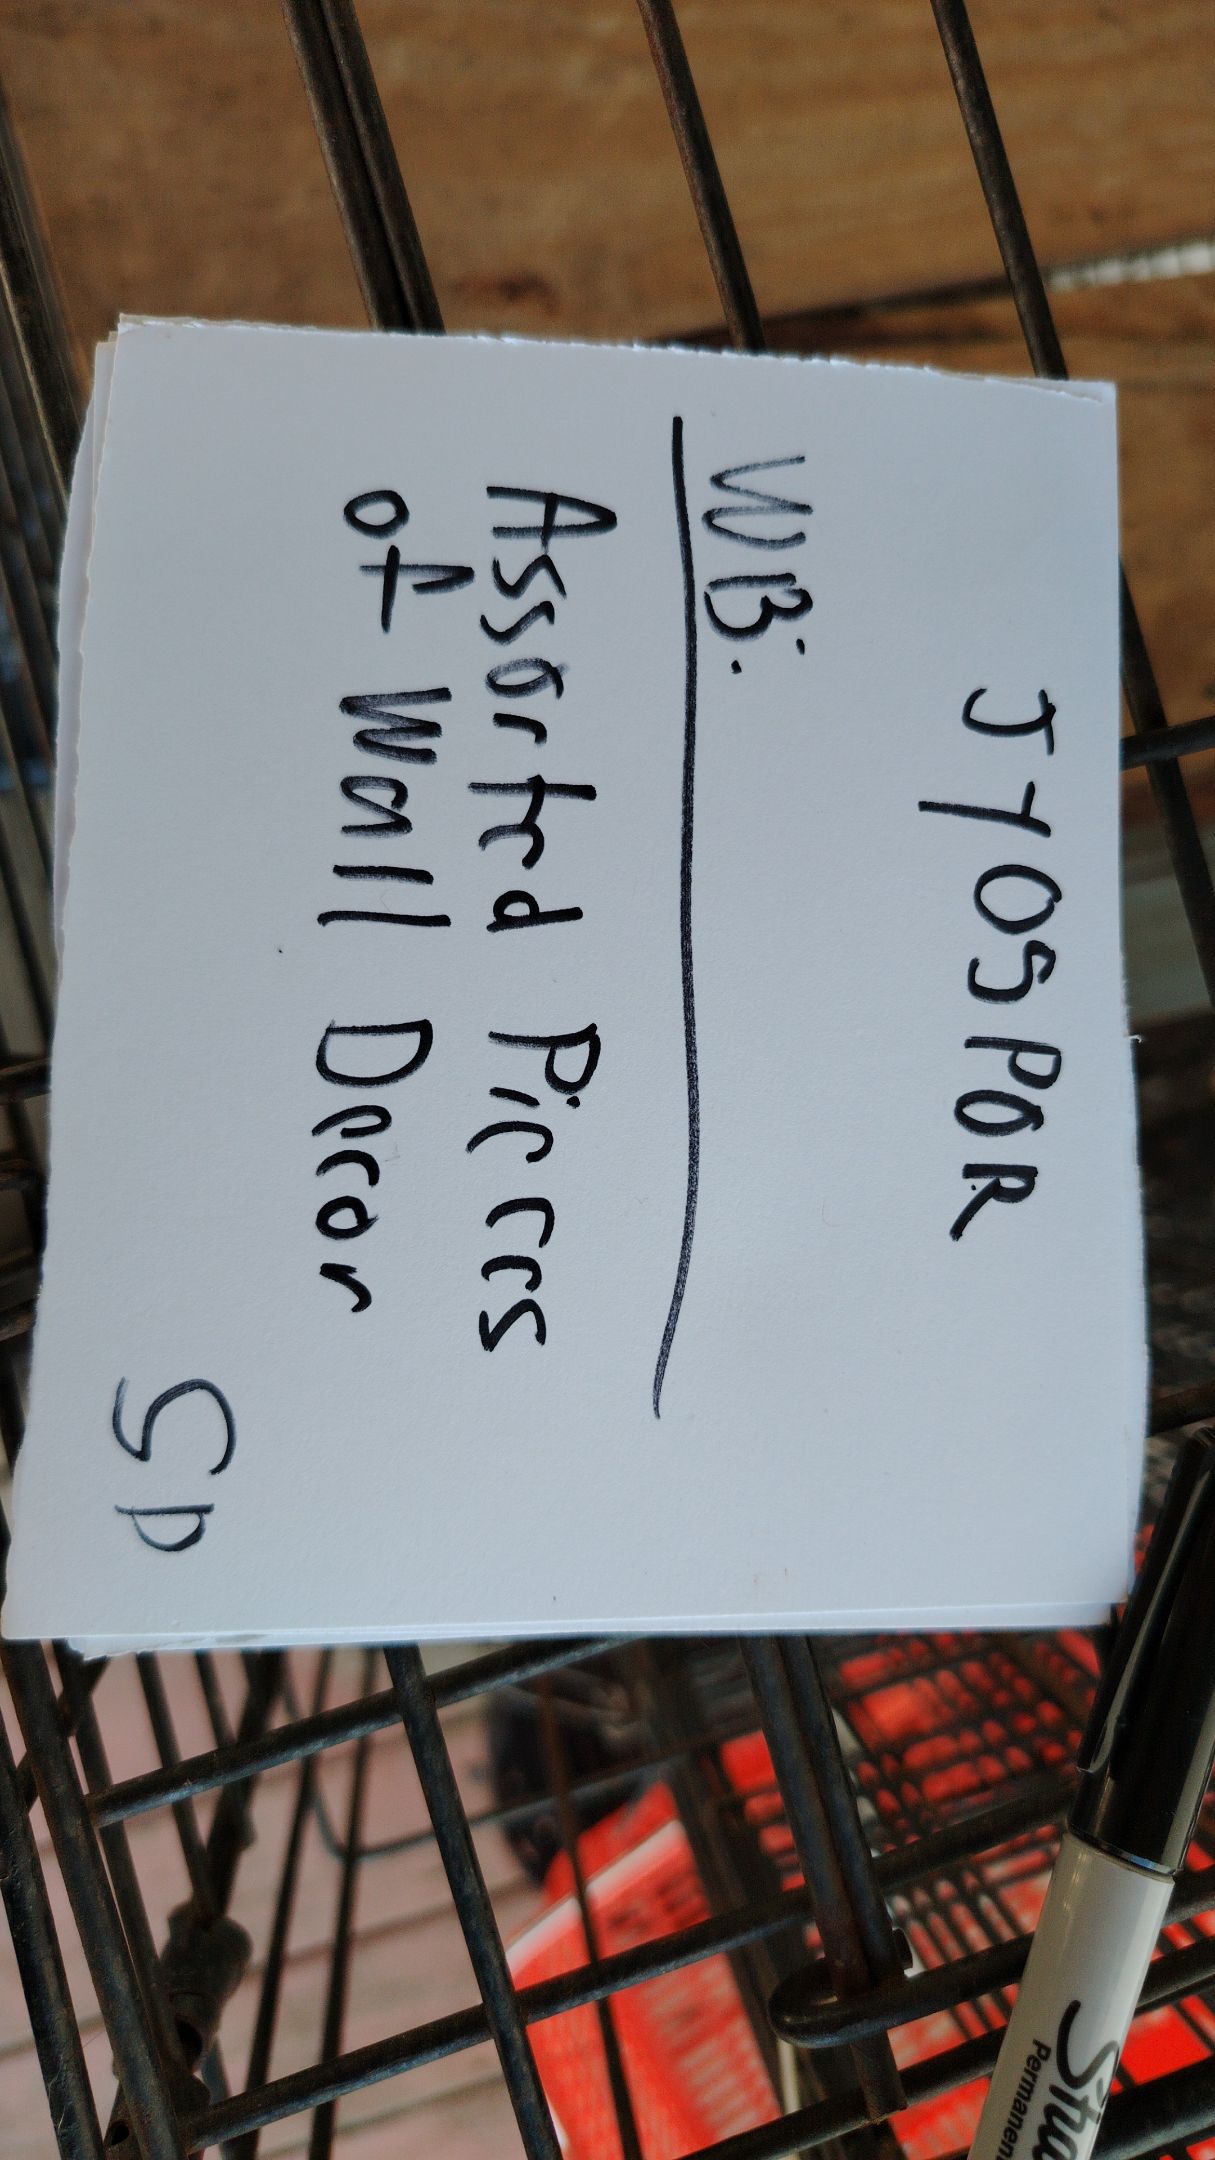 JYOSPOR
WB:
Assorted Pieces
of Wall Decor
Sp
Sha
Permanen